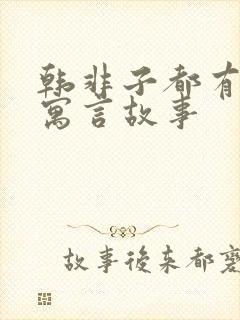 韩非子都有
寓言故事
故事後来都